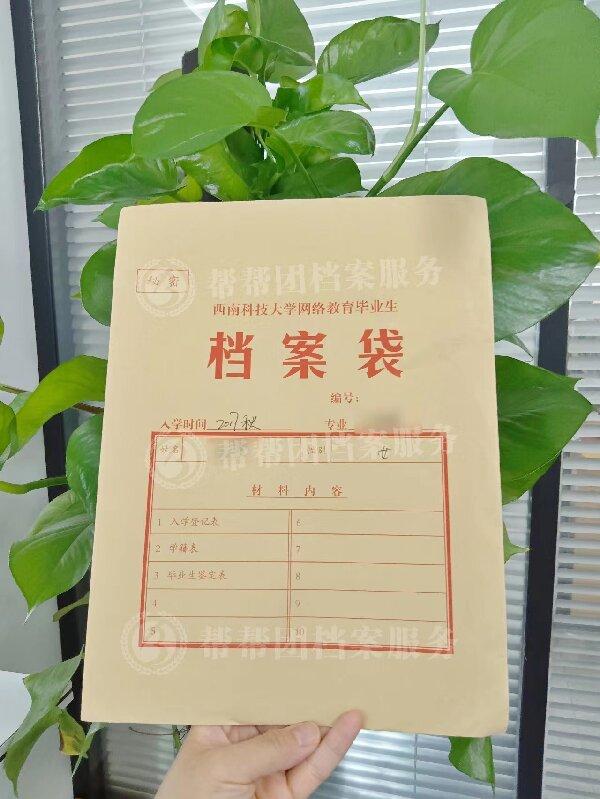 秘密
帮帮团档案服务
西南科技大学网络教育毕业生
档案袋
编号：
入学时间 2017秋 专业
姓名 性别 女
帮帮团档案服务
材料内容
1 入学登记表 6
2 学籍表 7
3 毕业生鉴定表 8
4 9
5 10
帮帮团档案服务